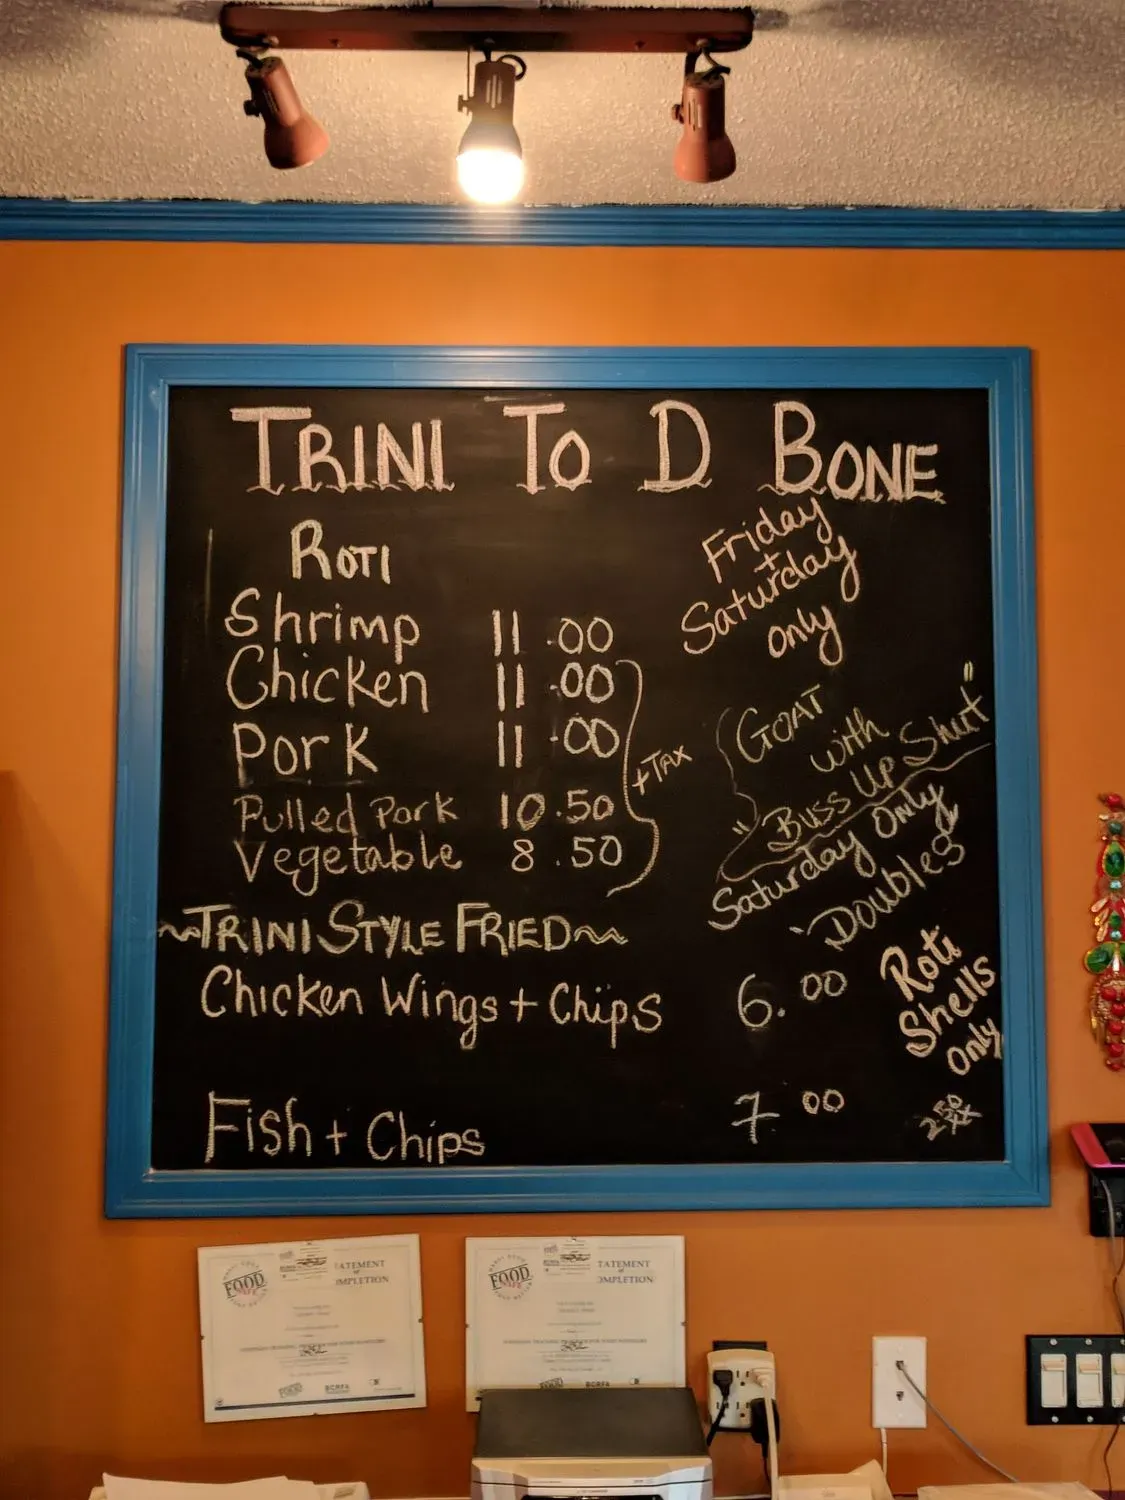 TRINI TO D BONE
ROTI
Shrimp 11.00
Chicken 11.00
Pork 11.00
Pulled Pork 10.50
Vegetable 8.50
+TAX
Friday
+
Saturday
only
GOAT
with
"Buss Up Shut"
Saturday Only
Doubles
~TRINI STYLE FRIED~
Chicken Wings + Chips 6.00
Fish + Chips 7 00
Roti
Shells
only
250
FOOD
TATEMENT
of
OMPLETION
BCRFA
FOOD
TATEMENT
of
OMPLETION
BCRFA